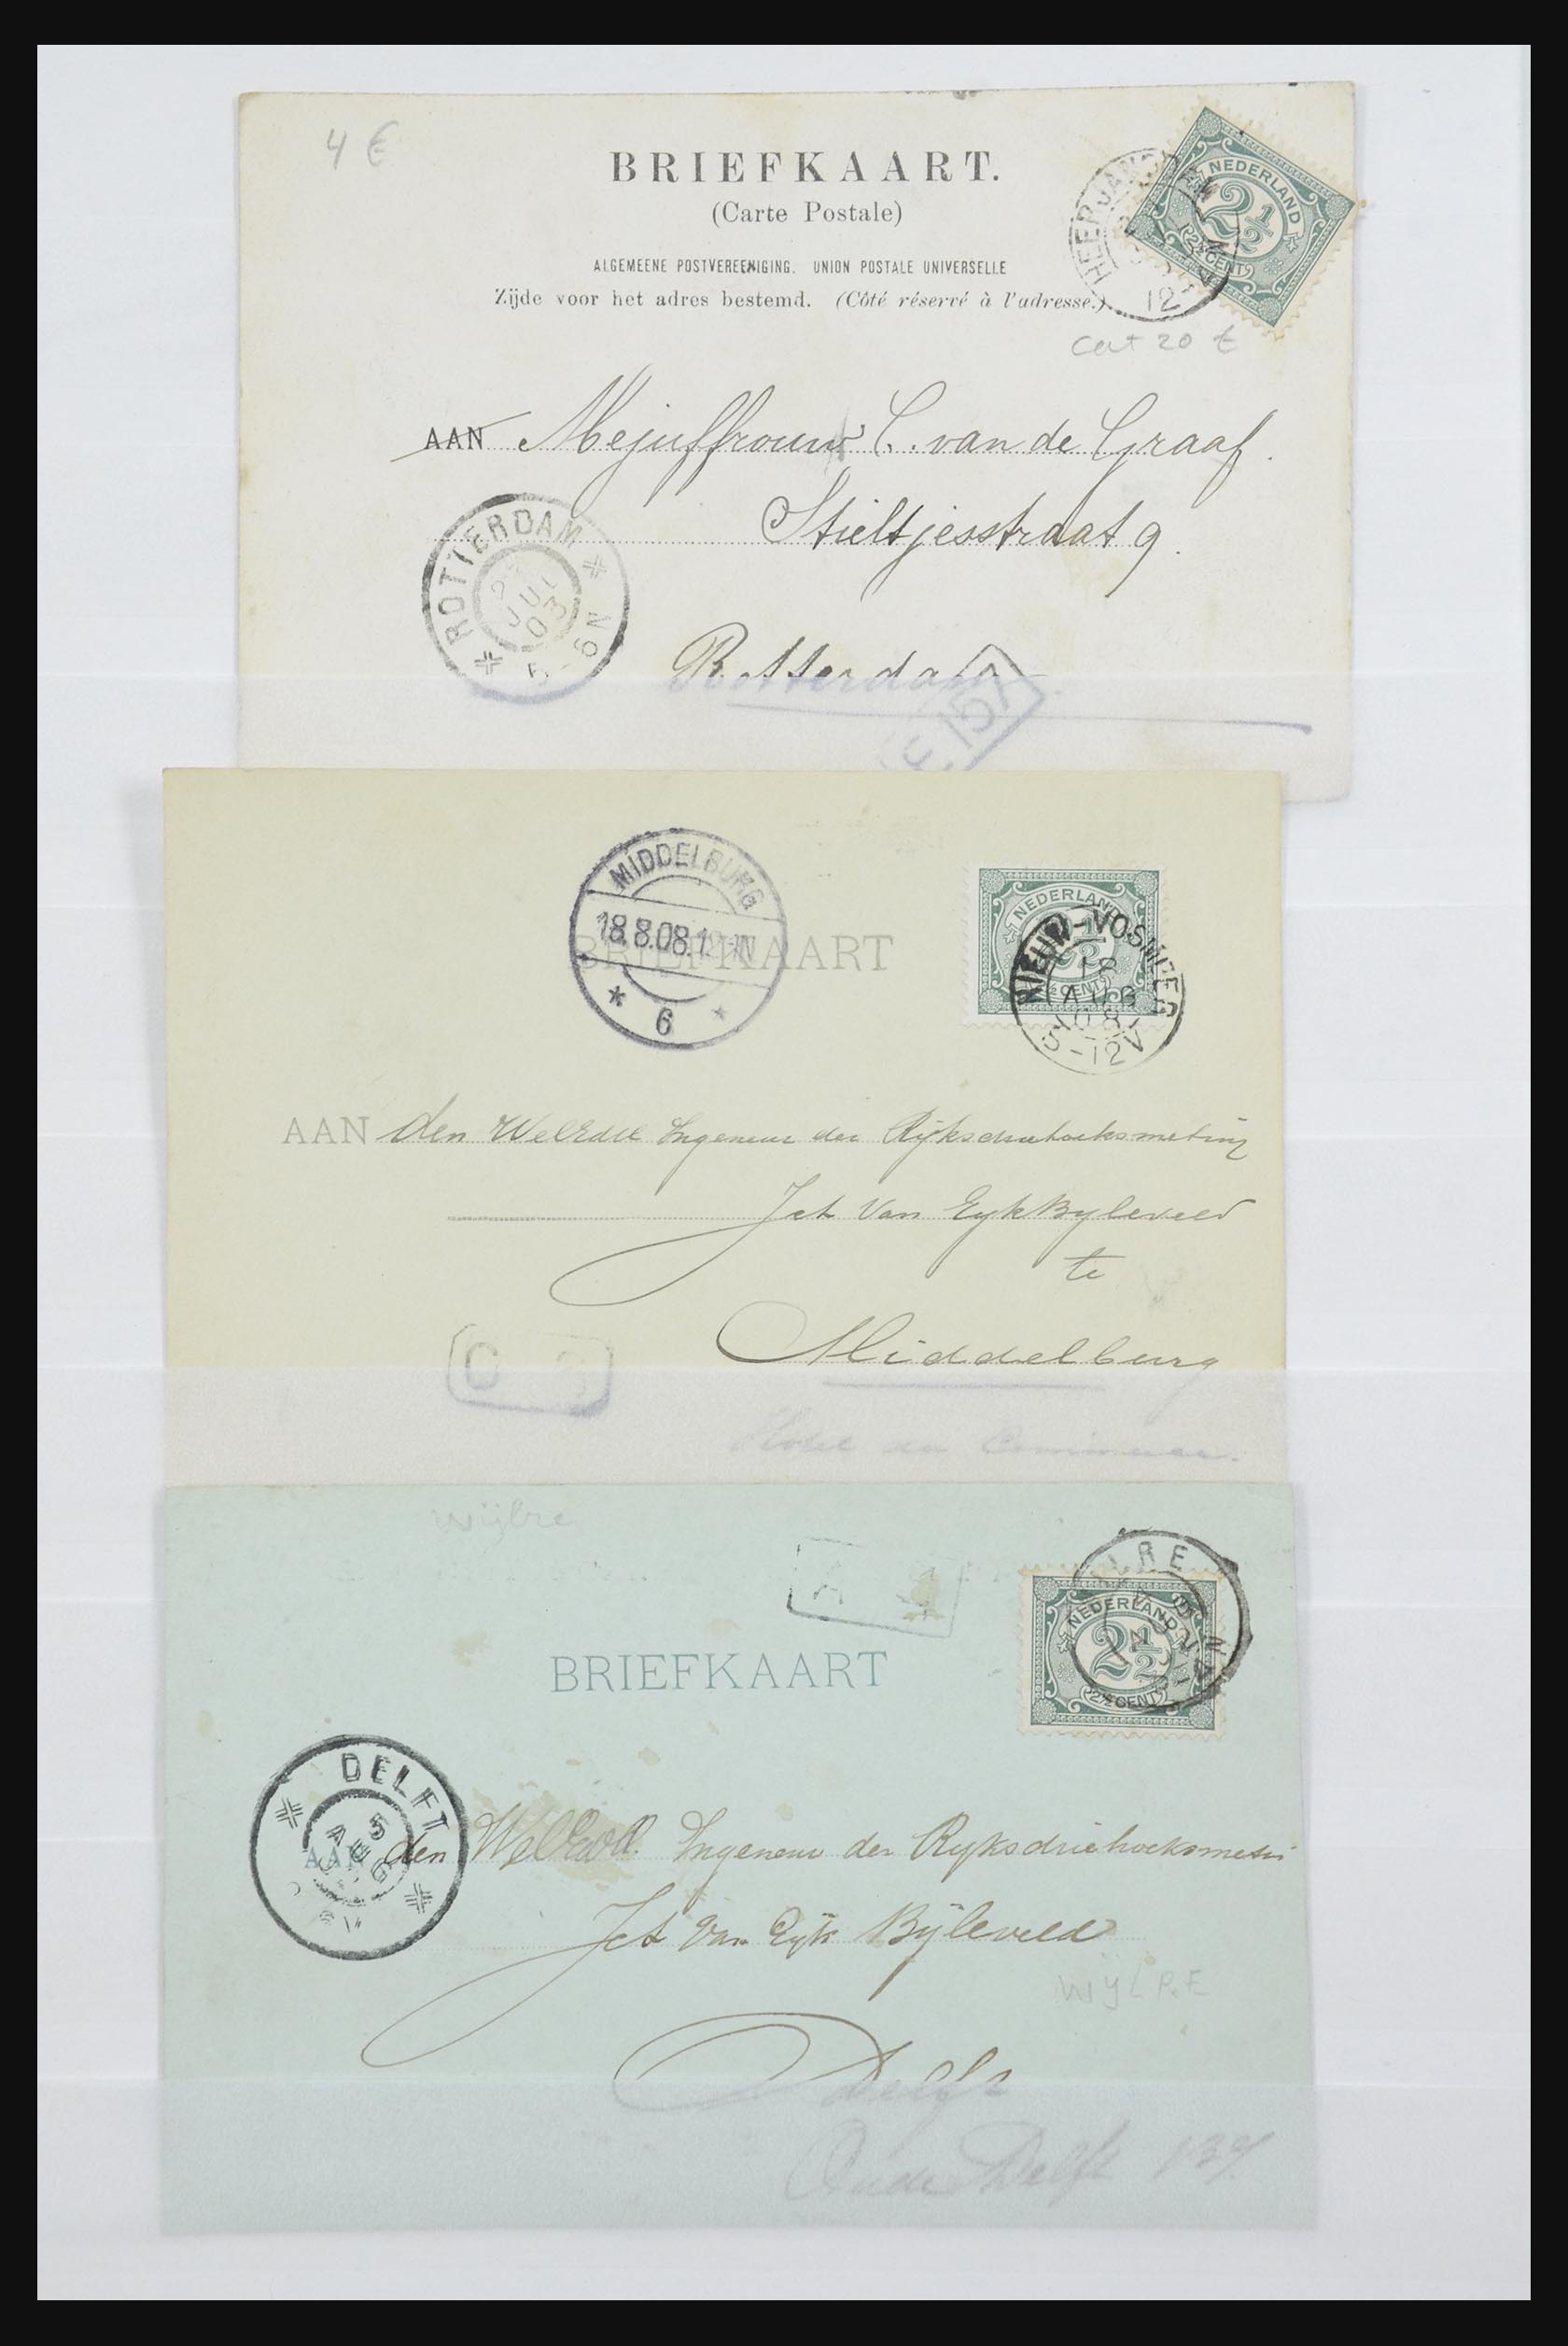 4 €
BRIEFKAART.
(Carte Postale)
ALGEMEENE POSTVEREENIGING. UNION POSTALE UNIVERSELLE
Zijde voor het adres bestemd. (Côté réservé à l'adresse.)
NEDERLAND
2½
2½ CENT
12
cat 20 €
AAN Mejuffrouw C. van de Graaf.
Stieltjesstraat 9.
ROTTERDAM
JUL
03
5-6N
Rotterdam
157
MIDDELBURG
18.8.08.1
6
BRIEFKAART
NEDERLAND
2½
CENT
NIEUW-VOSMEER
18
AUG
08
-12V
AAN den WelEdel Ingeneur der Rijksdriehoeksmeting
Jct Van Eyk Byleveld
te
Middelburg
C
Wijlre
A 4
BRIEFKAART
NEDERLAND
2½
2½ CENT
LRE
DELFT
5
AAN den WelEdel. Ingeneur der Ryksdriehoeksmeti
Jct Van Eyk Bijleveld
WYLRE
Delft
Oude Delft 137